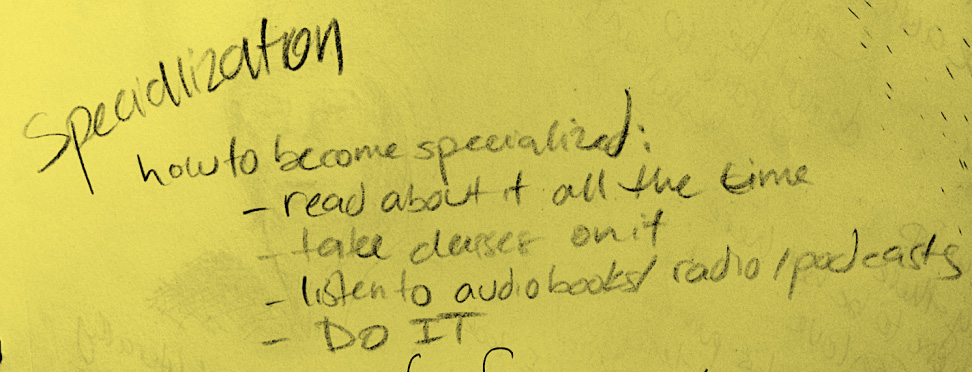 Speciallization
how to become specialized:
- read about it all the time
- take classes on it
- listen to audiobooks/ radio/podcasts
- DO IT